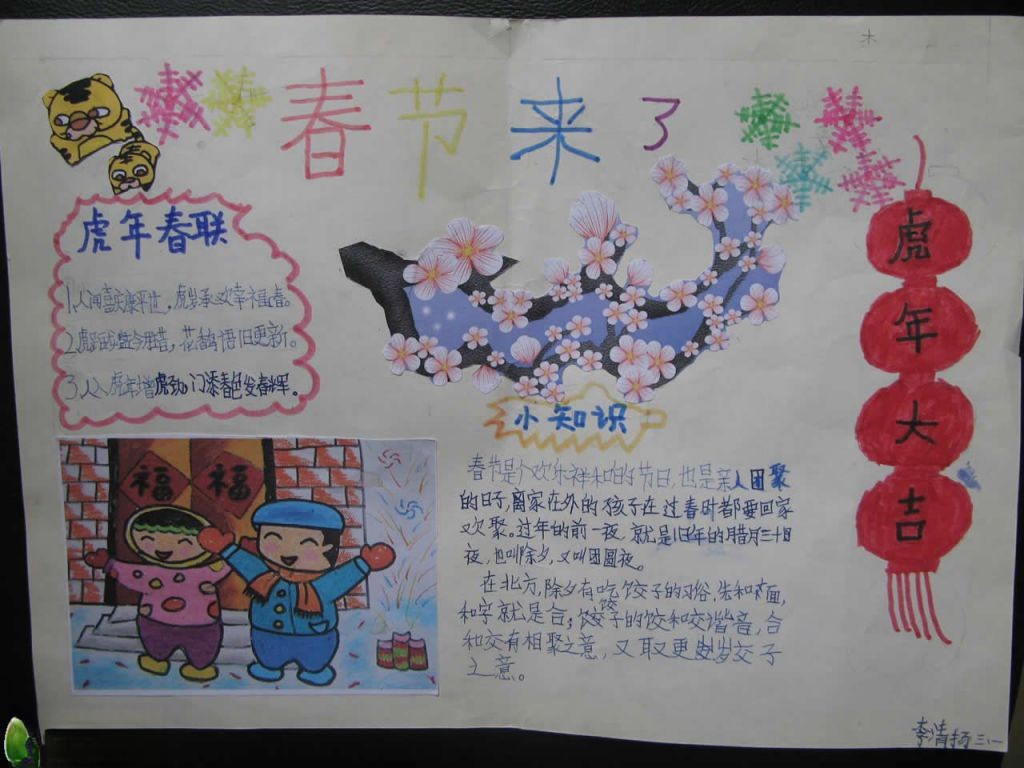 春节来了
虎年春联
1.人间喜庆康平世,虎岁承欢幸福春。
2.今胜昔,花香鸟语旧更新。
3.人入虎年增虎劲,门添春色发春辉。
福 福
小知识
春节是个欢乐祥和的节日,也是亲人团聚
的日子,离家在外的孩子在过春时都要回家
欢聚。过年的前一夜,就是旧年的腊月三十日
夜,也叫除夕,又叫团圆夜。
在北方,除夕有吃饺子的习俗,先和面,
和字就是合;饺子的饺和交谐音,合
和交有相聚之意,又取更岁交子
之意。
虎年大吉
李清扬三.一